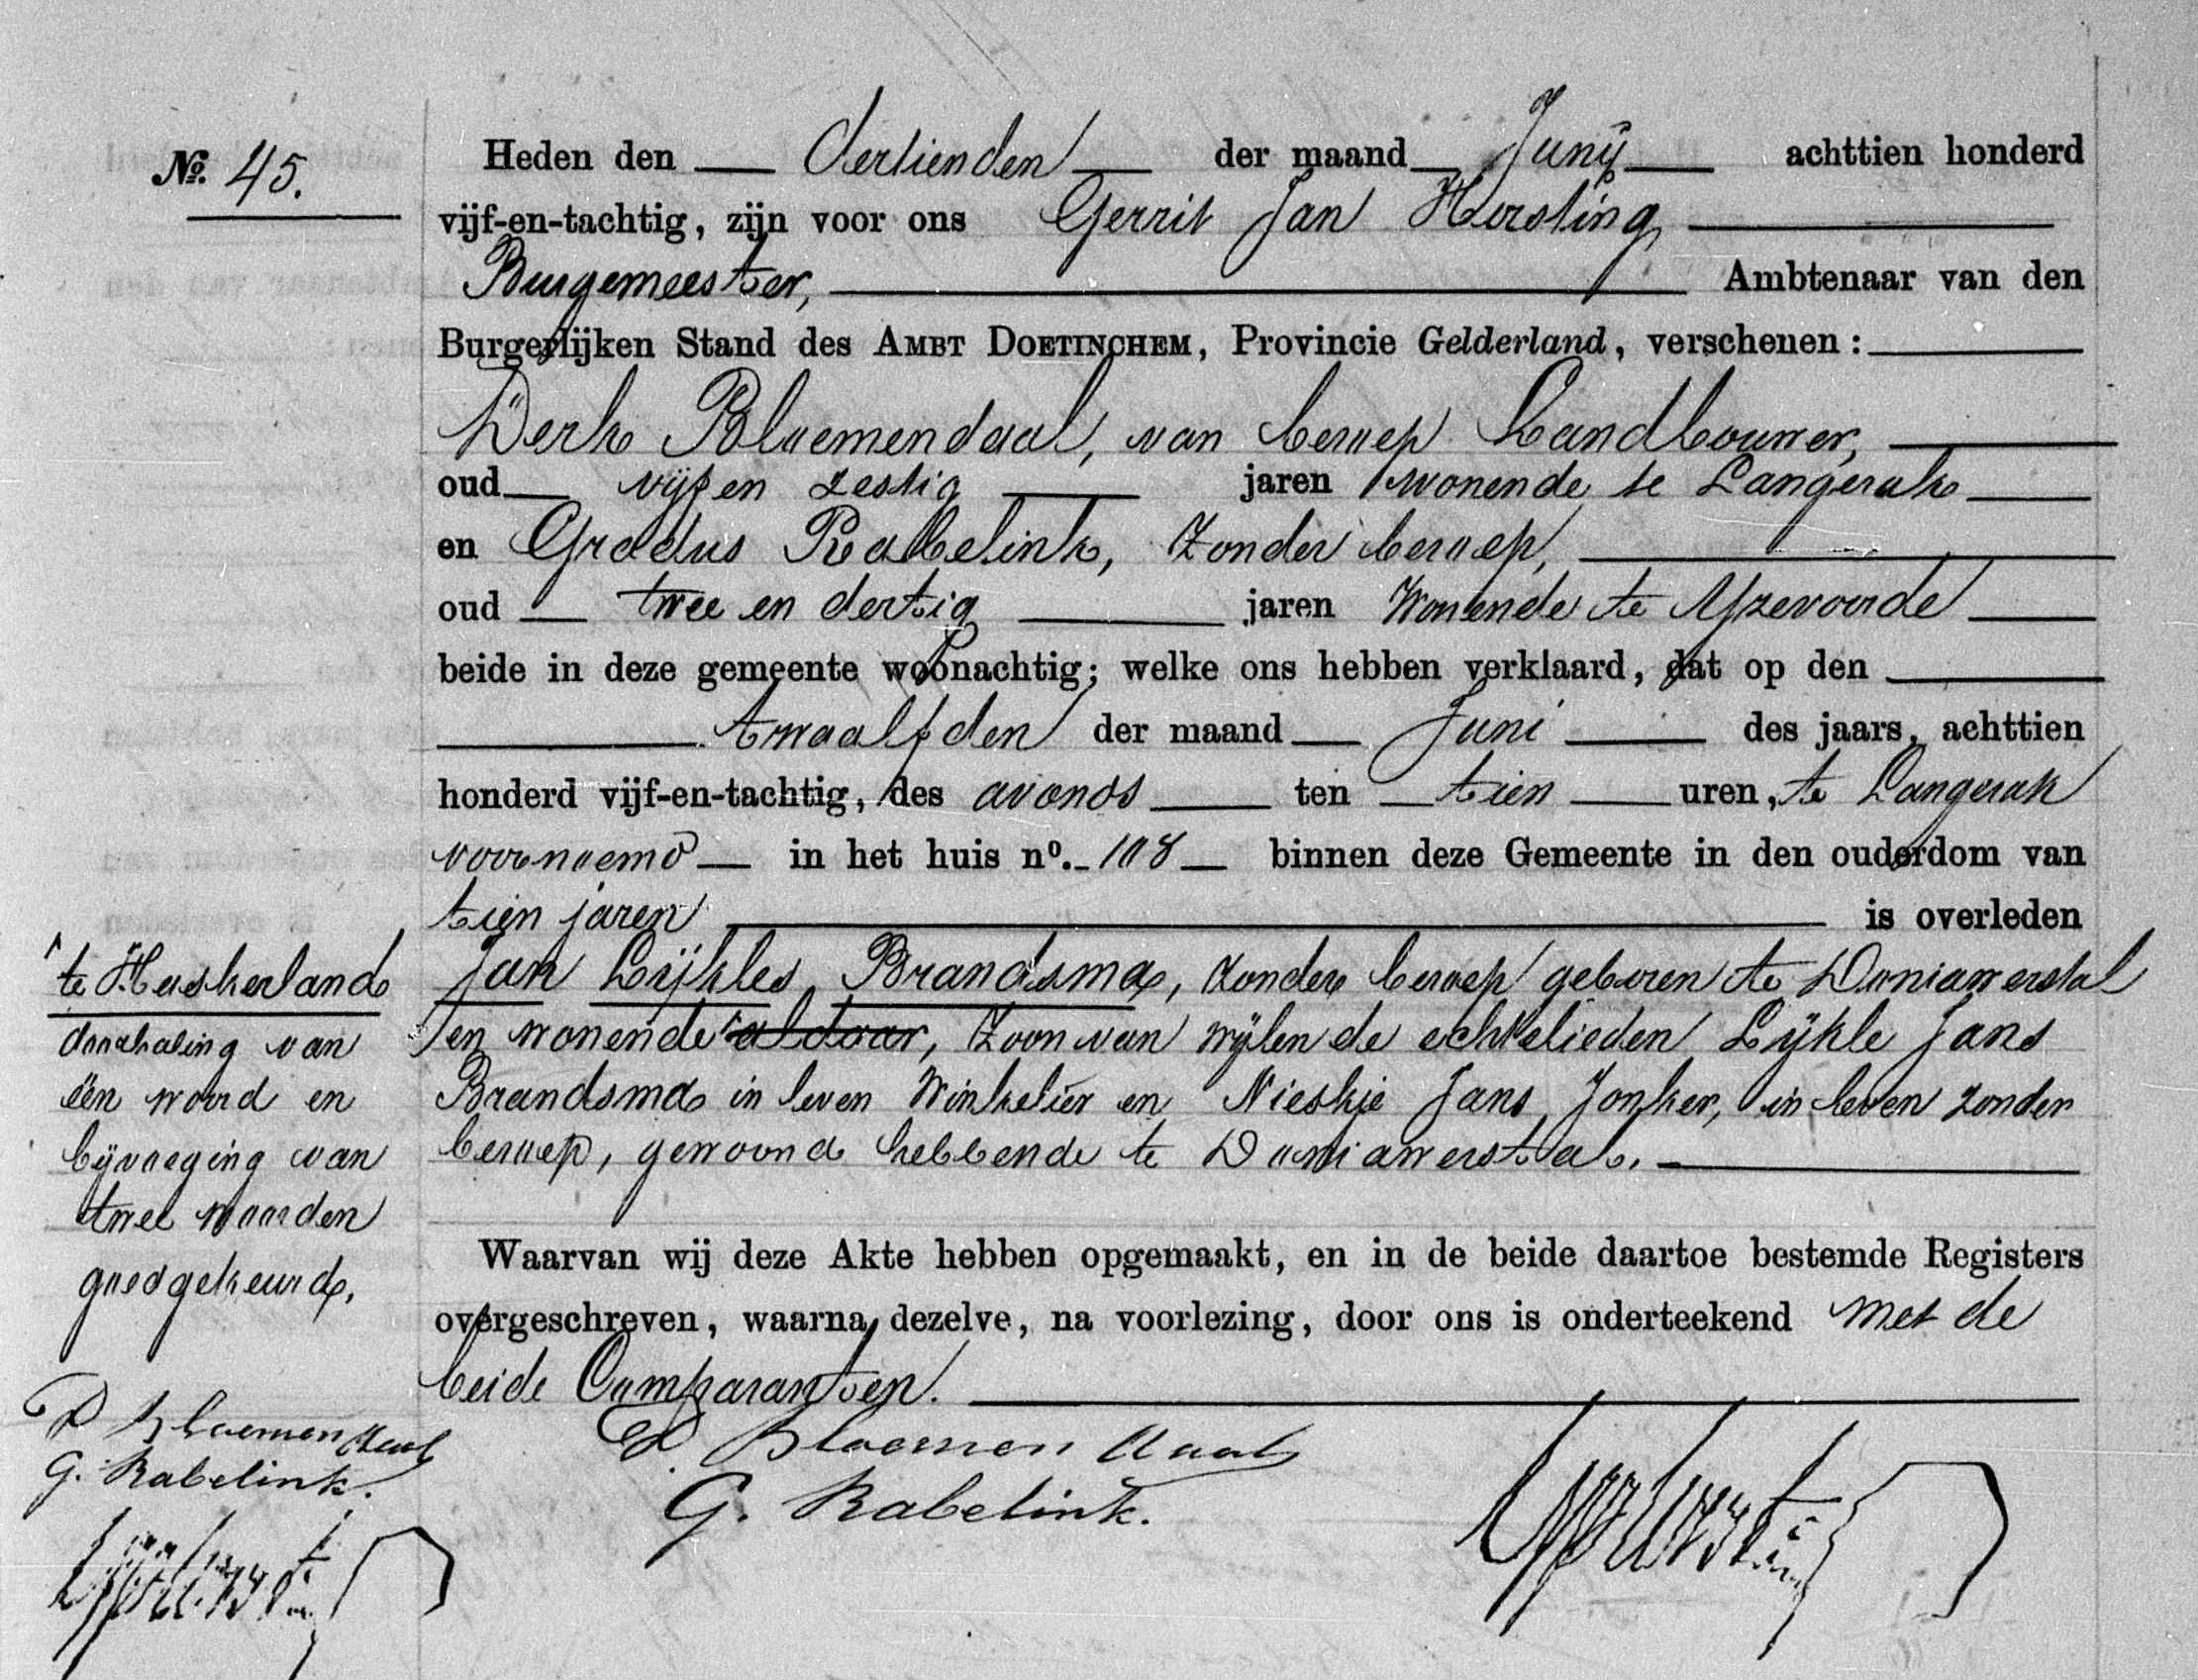 No. 45.
Heden den dertienden der maand Junij achttien honderd
vijf-en-tachtig, zijn voor ons Gerrit Jan Horsting
Burgemeester, Ambtenaar van den
Burgerlijken Stand des AMBT DOETINCHEM, Provincie Gelderland, verschenen:
Derk Bloemendaal, van beroep Landbouwer,
oud vijf en zestig jaren wonende te Langerak
en Gradus Rabelink, zonder beroep,
oud twee en dertig jaren wonende te IJzevoorde
beide in deze gemeente woonachtig; welke ons hebben verklaard, dat op den
twaalfden der maand Juni des jaars, achttien
honderd vijf-en-tachtig, des avonds ten tien uren, te Langerak
voornoemd in het huis no. 108 binnen deze Gemeente in den ouderdom van
tien jaren is overleden
Jan Lijkles Brandsma, zonder beroep geboren te Doniawerstal
en wonende aldaar, zoon van wijlen de echtelieden Lijkle Jans
Brandsma in leven Winkelier en Nieskje Jans Jonker, in leven zonder
beroep, gewoond hebbende te Doniawerstal.
te Haskerland
doorhaling van
één woord en
bijvoeging van
twee woorden
goedgekeurd,
D Bloemendaal
G. Rabelink.
Waarvan wij deze Akte hebben opgemaakt, en in de beide daartoe bestemde Registers
overgeschreven, waarna dezelve, na voorlezing, door ons is onderteekend met de
beide Comparanten.
D. Bloemendaal
G. Rabelink.